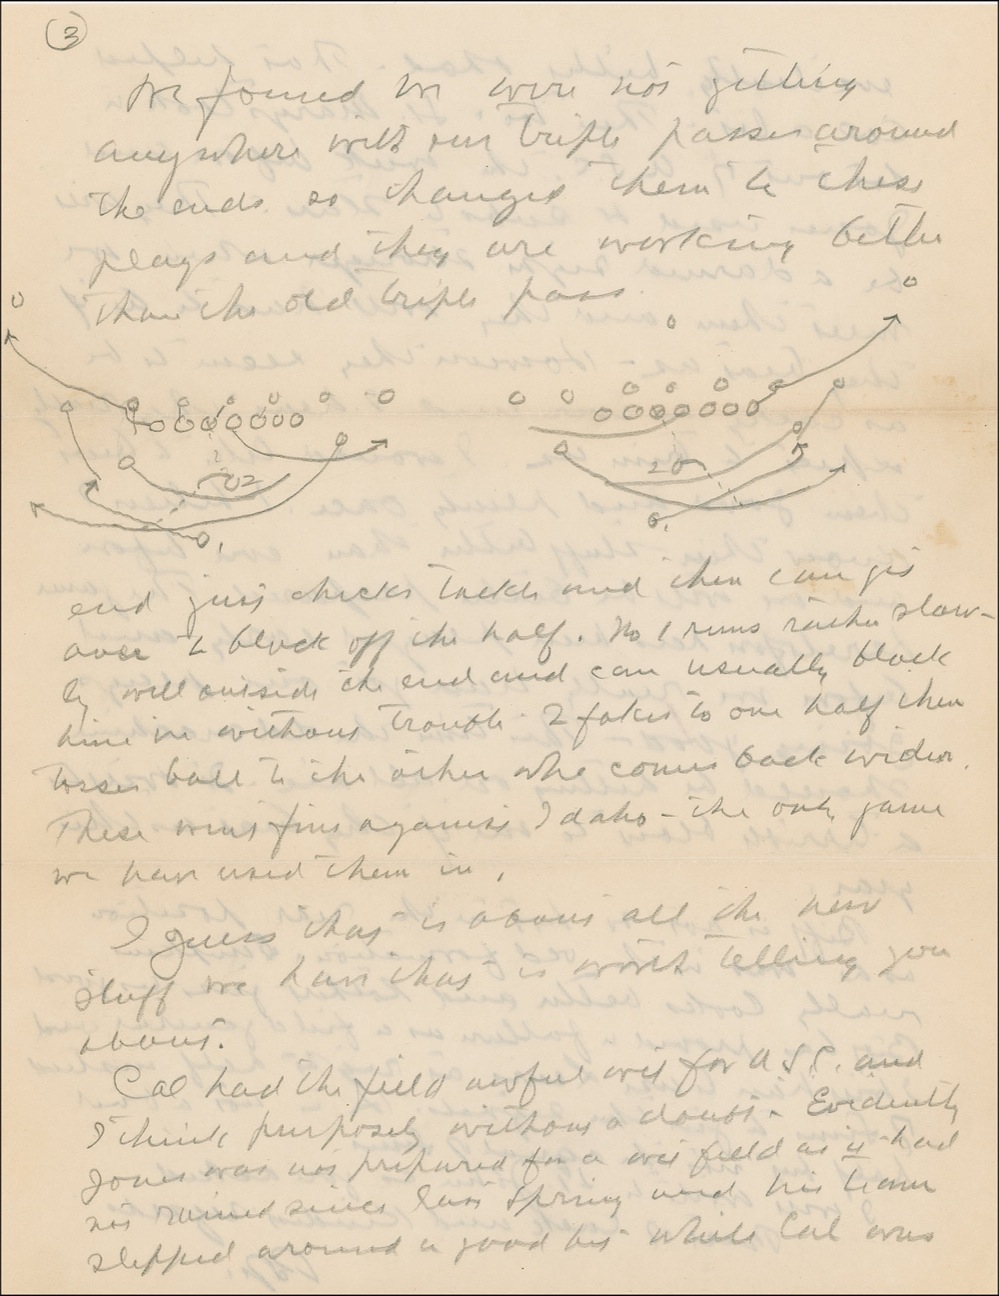 3
We found we were not getting
anywhere with our triple passes around
the ends so changed them to these
plays and they are working better
than the old triple pass
2
2
1
1
end just checks tackle and then can get
over to block off the half. No 1 runs rather slow-
ly well outside the end and can usually block
him in without trouble. 2 fakes to one half then
tosses ball to the other who comes back wider.
These went fine against Idaho – the only game
we have used them in.
I guess that is about all the new
stuff we have that is worth telling you
about.
Cal had the field awful wet for U.S.C. and
I think purposely without a doubt. Evidently
Jones was not prepared for a wet field as it had
not rained since last Spring and his team
slipped around a good bit while Cal was